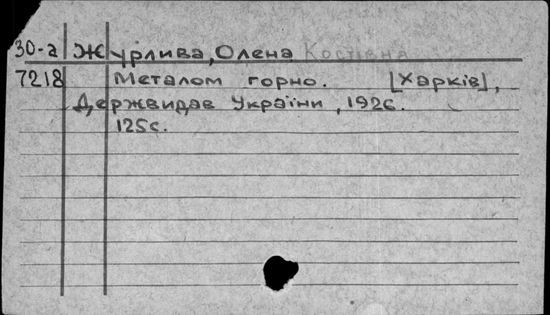 30-а Журлива, Олена Костівна
7218 Металом горно. [Харків],
Держвидав України, 1926.
125с.